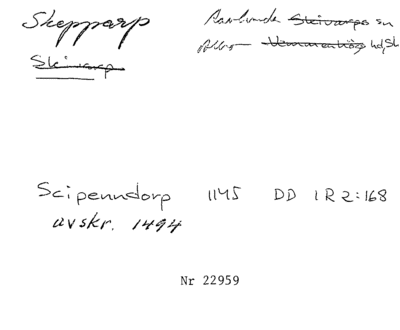 Skepparp Ravlunda Skivarps sn
Skivarp Albo Vemmenhögs hd, Sk
Scipenndorp 1145 DD 1 R 2:168
avskr. 1494
Nr 22959